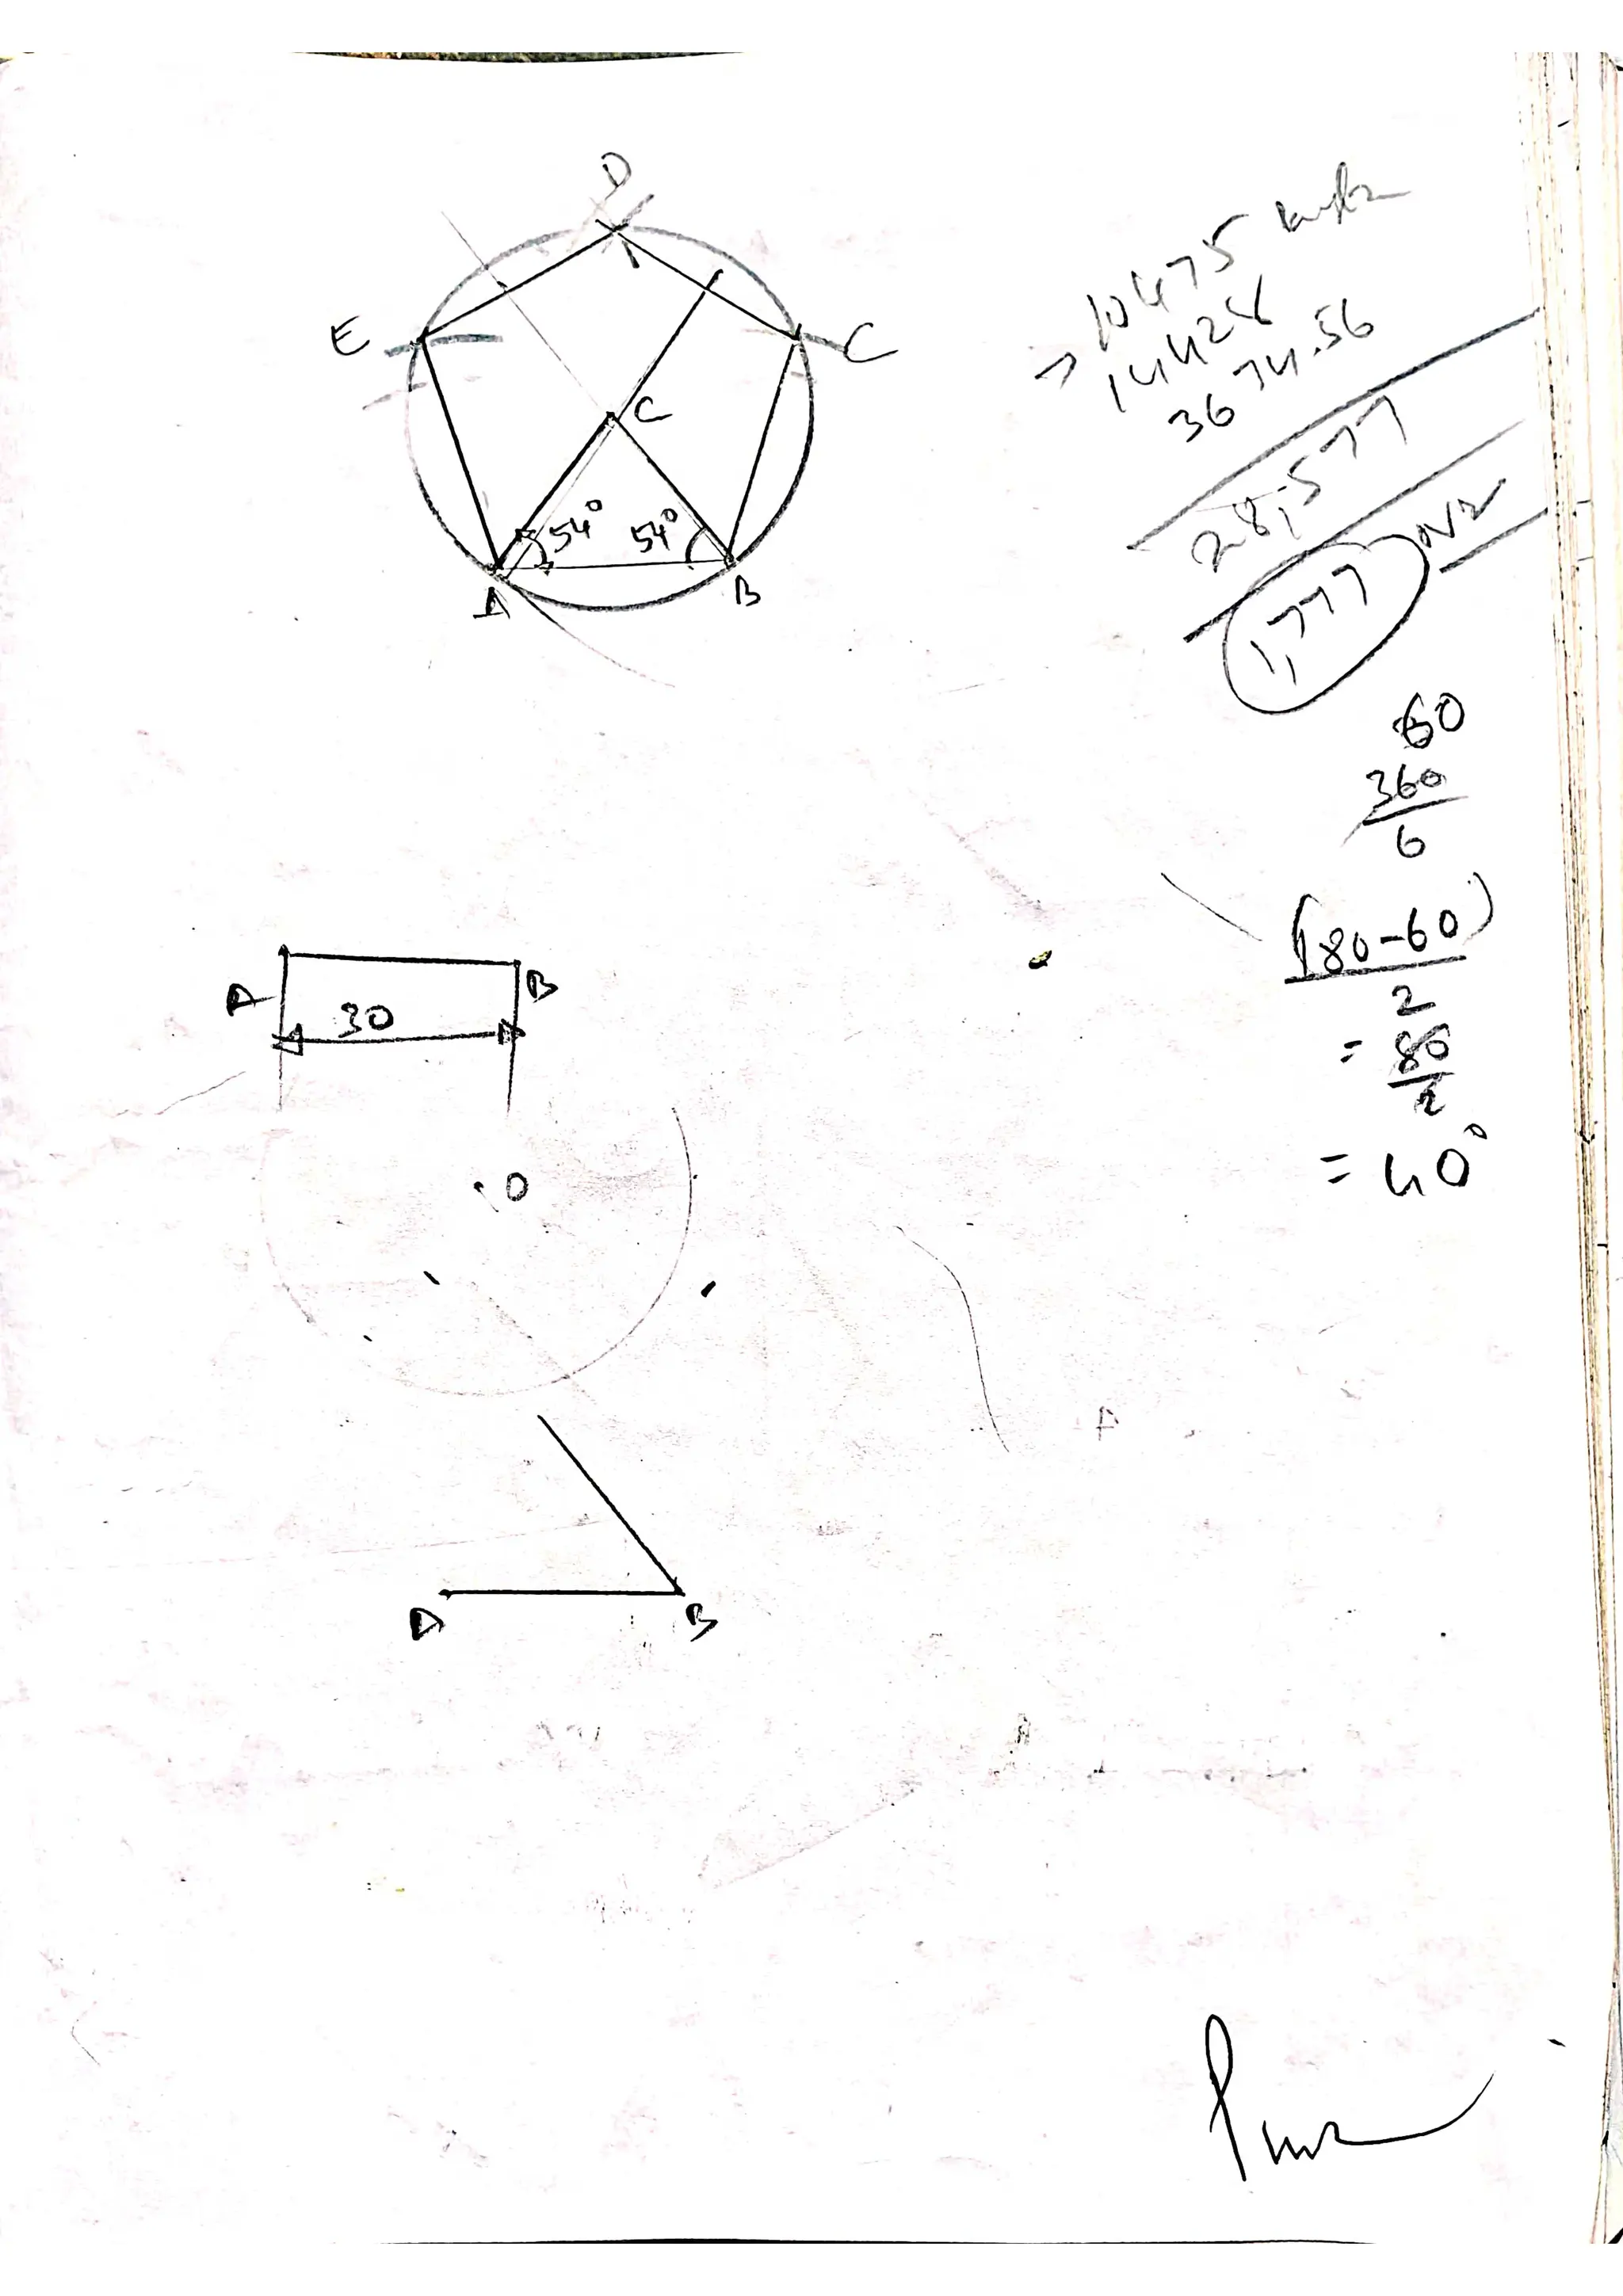 D
E
C
C
54° 54°
A
B
10475
14428
3674.56
28,577
1,777
60
360
6
(180-60)
2
= 80
2
= 40°
A
B
30
O
A
B